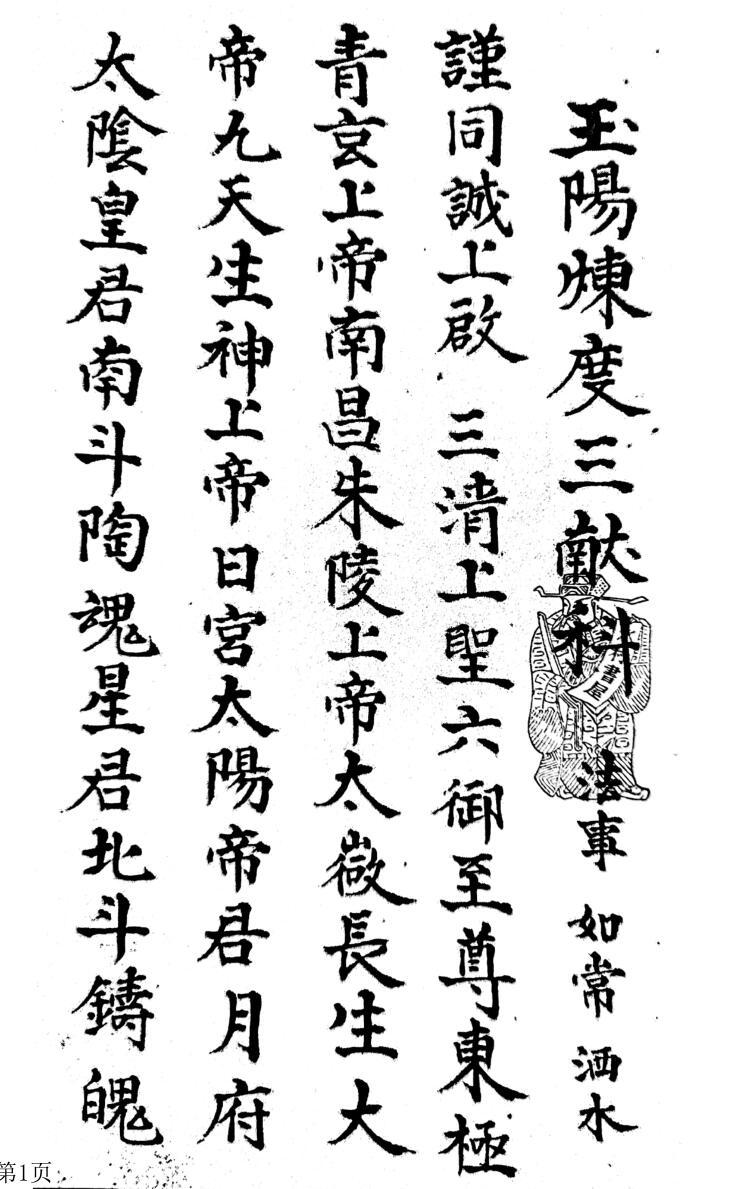 玉陽煉度三献科 法事 如常 洒水
謹同誠上啟 三清上聖六御至尊東極
青玄上帝南昌朱陵上帝太微長生大
帝九天生神上帝日宮太陽帝君月府
太陰皇君南斗陶魂星君北斗鑄魄
書屋
第1页